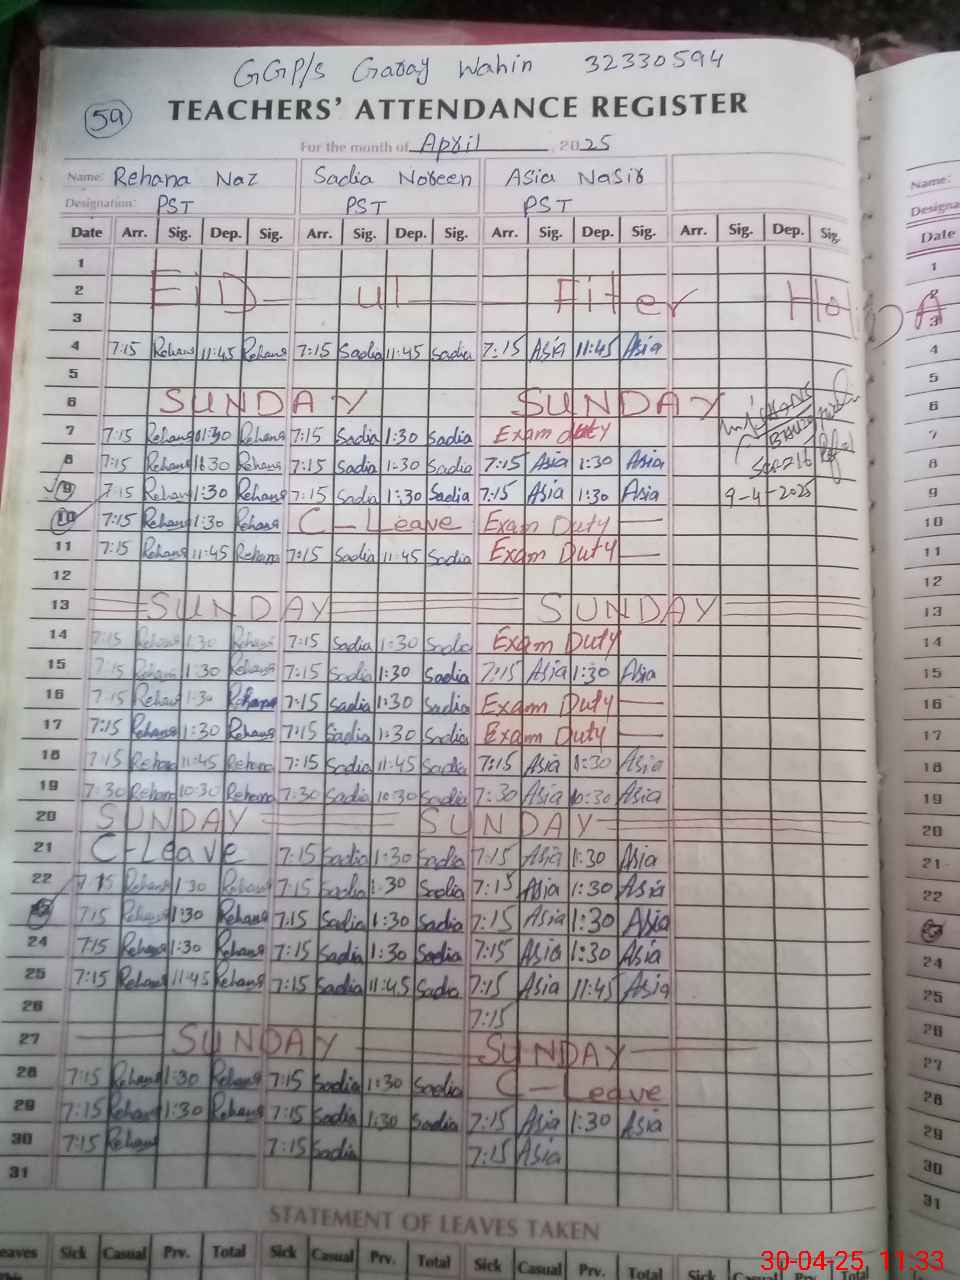 GGP/S Garay Wahin 32330594
59
TEACHERS' ATTENDANCE REGISTER
For the month of April, 2025
Name: Rehana Naz Sadia Noreen Asia Nasir
Designation: PST PST PST
Date Arr. Sig. Dep. Sig. Arr. Sig. Dep. Sig. Arr. Sig. Dep. Sig. Arr. Sig. Dep. Sig.
1
2 EID ul Fiter
3
4 7:15 Rehana 11:45 Rehana 7:15 Sadia 11:45 Sadia 7:15 Asia 11:45 Asia
5
6 SUNDAY SUNDAY
7 7:15 Rehana 1:30 Rehana 7:15 Sadia 1:30 Sadia Exam duty
8 7:15 Rehana 1:30 Rehana 7:15 Sadia 1:30 Sadia 7:15 Asia 1:30 Asia
9 7:15 Rehana 1:30 Rehana 7:15 Sadia 1:30 Sadia 7:15 Asia 1:30 Asia 9-4-2025
10 7:15 Rehana 1:30 Rehana C-Leave Exam Duty
11 7:15 Rehana 11:45 Rehana 7:15 Sadia 11:45 Sadia Exam Duty
12
13 SUNDAY SUNDAY
14 7:15 Rehana 1:30 Rehana 7:15 Sadia 1:30 Sadia Exam Duty
15 7:15 Rehana 1:30 Rehana 7:15 Sadia 1:30 Sadia 7:15 Asia 1:30 Asia
16 7:15 Rehana 1:30 Rehana 7:15 Sadia 1:30 Sadia Exam Duty
17 7:15 Rehana 1:30 Rehana 7:15 Sadia 1:30 Sadia Exam Duty
18 7:15 Rehana 11:45 Rehana 7:15 Sadia 11:45 Sadia 7:15 Asia 1:30 Asia
19 7:30 Rehana 10:30 Rehana 7:30 Sadia 10:30 Sadia 7:30 Asia 10:30 Asia
20 SUNDAY SUNDAY
21 C-Leave 7:15 Sadia 1:30 Sadia 7:15 Asia 1:30 Asia
22 7:15 Rehana 1:30 Rehana 7:15 Sadia 1:30 Sadia 7:15 Asia 1:30 Asia
7:15 Rehana 1:30 Rehana 7:15 Sadia 1:30 Sadia 7:15 Asia 1:30 Asia
24 7:15 Rehana 1:30 Rehana 7:15 Sadia 1:30 Sadia 7:15 Asia 1:30 Asia
25 7:15 Rehana 11:45 Rehana 7:15 Sadia 11:45 Sadia 7:15 Asia 11:45 Asia
26 7:15
27 SUNDAY SUNDAY
28 7:15 Rehana 1:30 Rehana 7:15 Sadia 1:30 Sadia C-Leave
29 7:15 Rehana 1:30 Rehana 7:15 Sadia 1:30 Sadia 7:15 Asia 1:30 Asia
30 7:15 Rehana 7:15 Sadia 7:15 Asia
31
STATEMENT OF LEAVES TAKEN
eaves Sick Casual Prv. Total Sick Casual Prv. Total Sick Casual Prv. Total Sick Casual Prv. Total
Name:
Designa
Date
1
2
3
4
5
6
7
8
9
10
11
12
13
14
15
16
17
18
19
20
21
22
24
25
26
27
28
29
30
31
30-04-25 11:33